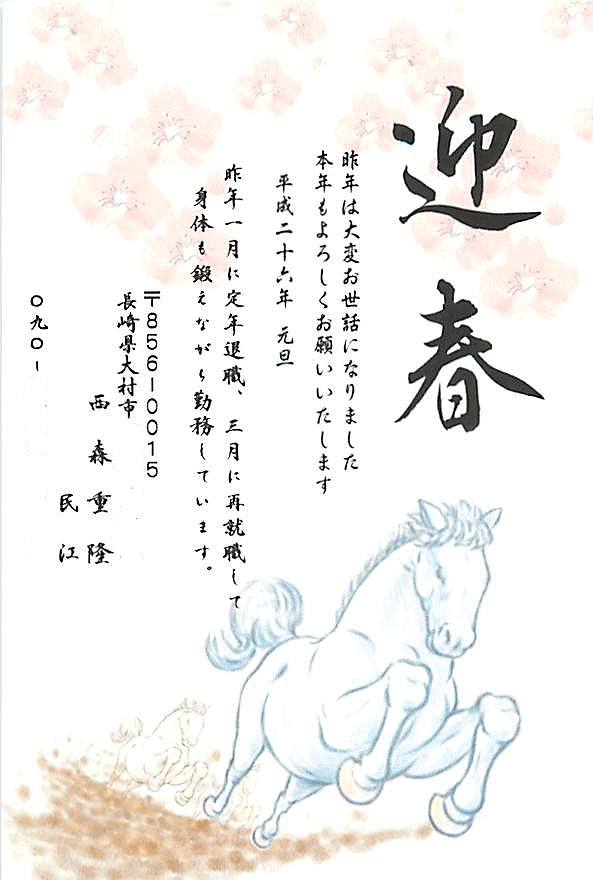 迎春
昨年は大変お世話になりました
本年もよろしくお願いいたします
平成二十六年 元旦
昨年一月に定年退職、三月に再就職して
身体も鍛えながら勤務しています。
〒856-0015
長崎県大村市
西森重隆
民江
〇九〇-